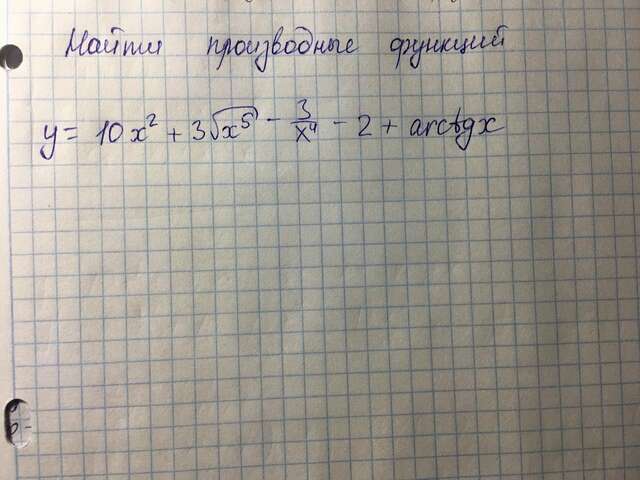 Найти производные функций
y = 10x² + 3√x⁵ - 3/x⁴ - 2 + arctgx